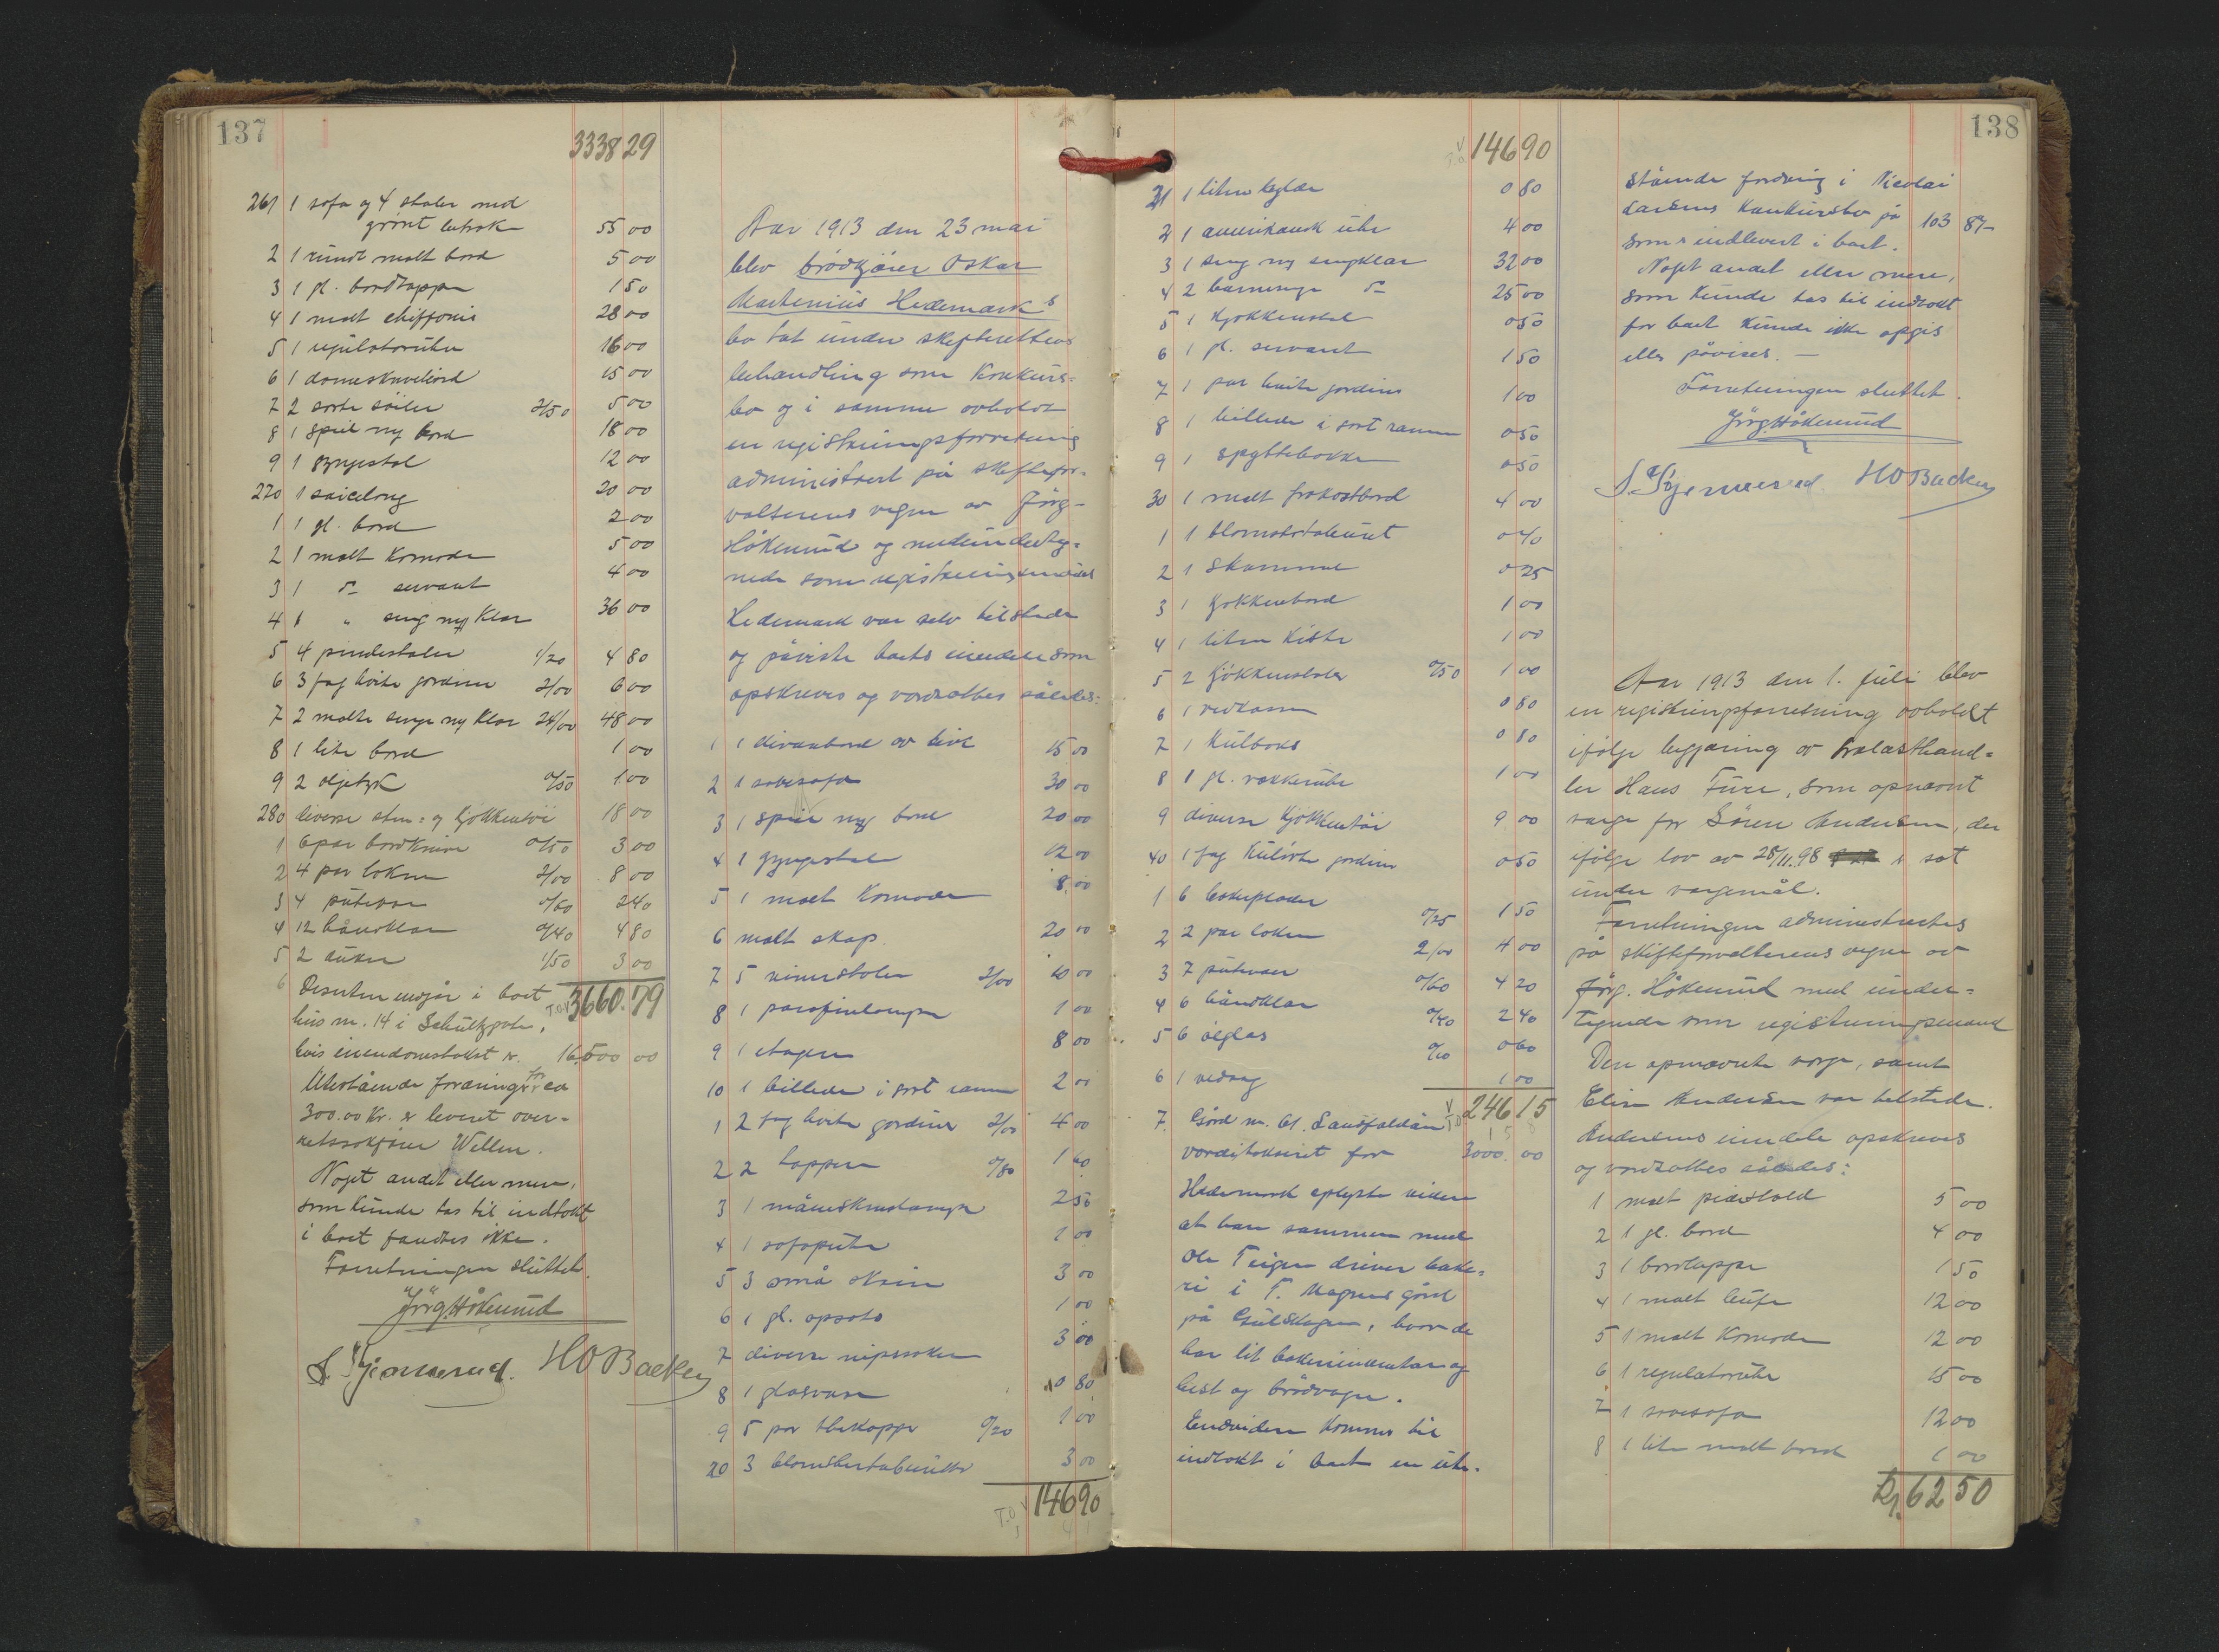 137
3338 29
261 1 sofa og 4 stoler med
grönt 55 00
2 1 rundt malt bord 5 00
3 1 gl. bordteppe 1 50
4 1 malt chiffonie 28 00
5 1 regulatoruhr 16 00
6 1 15 00
7 2 sorte söiler 2/50 5 00
8 1 speil m/ bord 18 00
9 1 gyngestol 12 00
270 1 20 00
1 1 gl. bord 2 00
2 1 malt Komode 5 00
3 1 do servant 4 00
4 1 " seng m/ Klær 36 00
5 4 pindestoler 1/20 4 80
6 3 fag hvite gardiner 2/00 6 00
7 2 malte senge m/ Klær 24/00 48 00
8 1 lite bord 1 00
9 2 oljetryk 0/50 1 00
280 diverse sten- og Kjökkentöi 18 00
1 6 par bordKnive 0/50 3 00
2 4 par lakner 2/00 8 00
3 4 putevar 0/60 2 40
4 12 håndklær 0/40 4 80
5 2 duker 1/50 3 00
6 Desuten indgår i boet
T.O.V 3660.79
hus nr. 14 i Schultzgate,
hvis eiendomstakst er 16,500 00
Utestående fordringer for ca
300.00 Kr. er leveret over-
retssakförer Wellen.
Noget andet eller mere,
som kunde tas til indtekt
i boet fandtes ikke.
Forretningen sluttet.
Jörg. Håkerud
HO Backer
Aar 1913 den 23 mai
blev brödkjörer Oskar
Martinius Hedemarks
bo tat under skifterettens
behandling som Konkurs-
bo og i samme avholdt
en registreringsforretning
administrert på skiftefor-
valterens vegne av Jörg.
Håkerud og medunderteg-
nede som registreringsmænd
Hedemark var selv tilstede
og påviste boets eiendele som
opskreves og vordsattes således:
1 1 divanbord av eik 15 00
2 1 sovesofa 30 00
3 1 speil m/ bord 20 00
4 1 gyngestol 12 00
5 1 malt Komode 8 00
6 malt skap 20 00
7 5 vinerstoler 2/00 10 00
8 1 parafinlampe 1 00
9 1 etagere 8 00
10 1 billede i sort ramme 2 00
1 2 fag hvite gardiner 2/00 4 00
2 2 tepper 0/80 1 60
3 1 måneskinslampe 2 50
4 1 sofapute 1 00
5 3 små skind 3 00
6 1 gl. opsats 1 00
7 diverse nipssaker 3 00
8 1 glasvase 0 80
9 5 par thekopper 0/20 1 00
20 3 blomstertaburetter 3 00
T.O V 146 90
138
V 146 90
21 1 liten 0 80
2 1 amerikansk uhr 4 00
3 1 seng m/ sengklær 32 00
4 2 barnesenge do 25 00
5 1 Kjökkenstol 0 50
6 1 gl. servant 1 50
7 1 par hvite gardiner 1 00
8 1 billede i sort ramme 0 50
9 1 spyttebakke 0 50
30 1 malt frokostbord 4 00
1 1 blomstertaburet 0 40
2 1 Skammel 0 25
3 1 Kjökkenbord 1 00
4 1 liten Kiste 1 00
5 2 Kjökkenstoler 0/50 1 00
6 1 vedkasse 0 80
7 1 Kulboks 0 80
8 1 gl. vækkeruhr 1 00
9 diverse Kjökkentöi 9 00
40 1 fag Kulörte gardiner 0 50
1 6 bakeplader 0/25 1 50
2 2 par laken 2/00 4 00
3 7 putevaer 0/60 4 20
4 6 håndklær 0/40 2 40
5 6 ölglas 0/10 0 60
6 1 vedsag 1 00
V 246 15
7 Gård nr. 61. Landfaldöen
vorditaksert for 3000.00
Hedemark oplyste videre
at han sammen med
Ole Teigen driver bake-
ri i T. Magnus gård
på Gulskogen, hvor de
har lit bakeriinventar og
hest og brödvogn.
Endvidere Kommer til
indtekt i boet en ute-
stående fordring i Nicolai
Larsens Konkursbo på 103 87
som er indlevert i boet.
Noget andet eller mere,
som kunde tas til indtekt
for boet kunde ikke opgis
eller påvises. —
Forretningen sluttet.
Jörg. Håkerud
HO Backer
Aar 1913 den 1. juli blev
en registringsforretning avholdt
ifölge begjæring av trælasthand-
ler Hans Fure, som opnævnt
værge for Sören Andersen, der
ifölge lov av 28/11.98 er sat
under værgemål.
Forretningen administrertes
på skifteforvalterens vegne av
Jörg. Håkerud med under-
tegnede som registreringsmænd
Den opnævnte værge, samt
Elise Andersen var tilstede.
Andersens eiendele opskreves
og vordsattes således:
1 malt 5 00
2 1 gl. bord 4 00
3 1 bordteppe 1 50
4 1 malt 12 00
5 1 malt Komode 12 00
6 1 regulatoruhr 15 00
7 1 sovesofa 12 00
8 1 lite malt bord 1 00
62 50